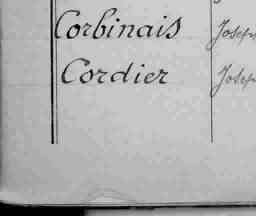 Corbinais Joseph
Cordier Josep